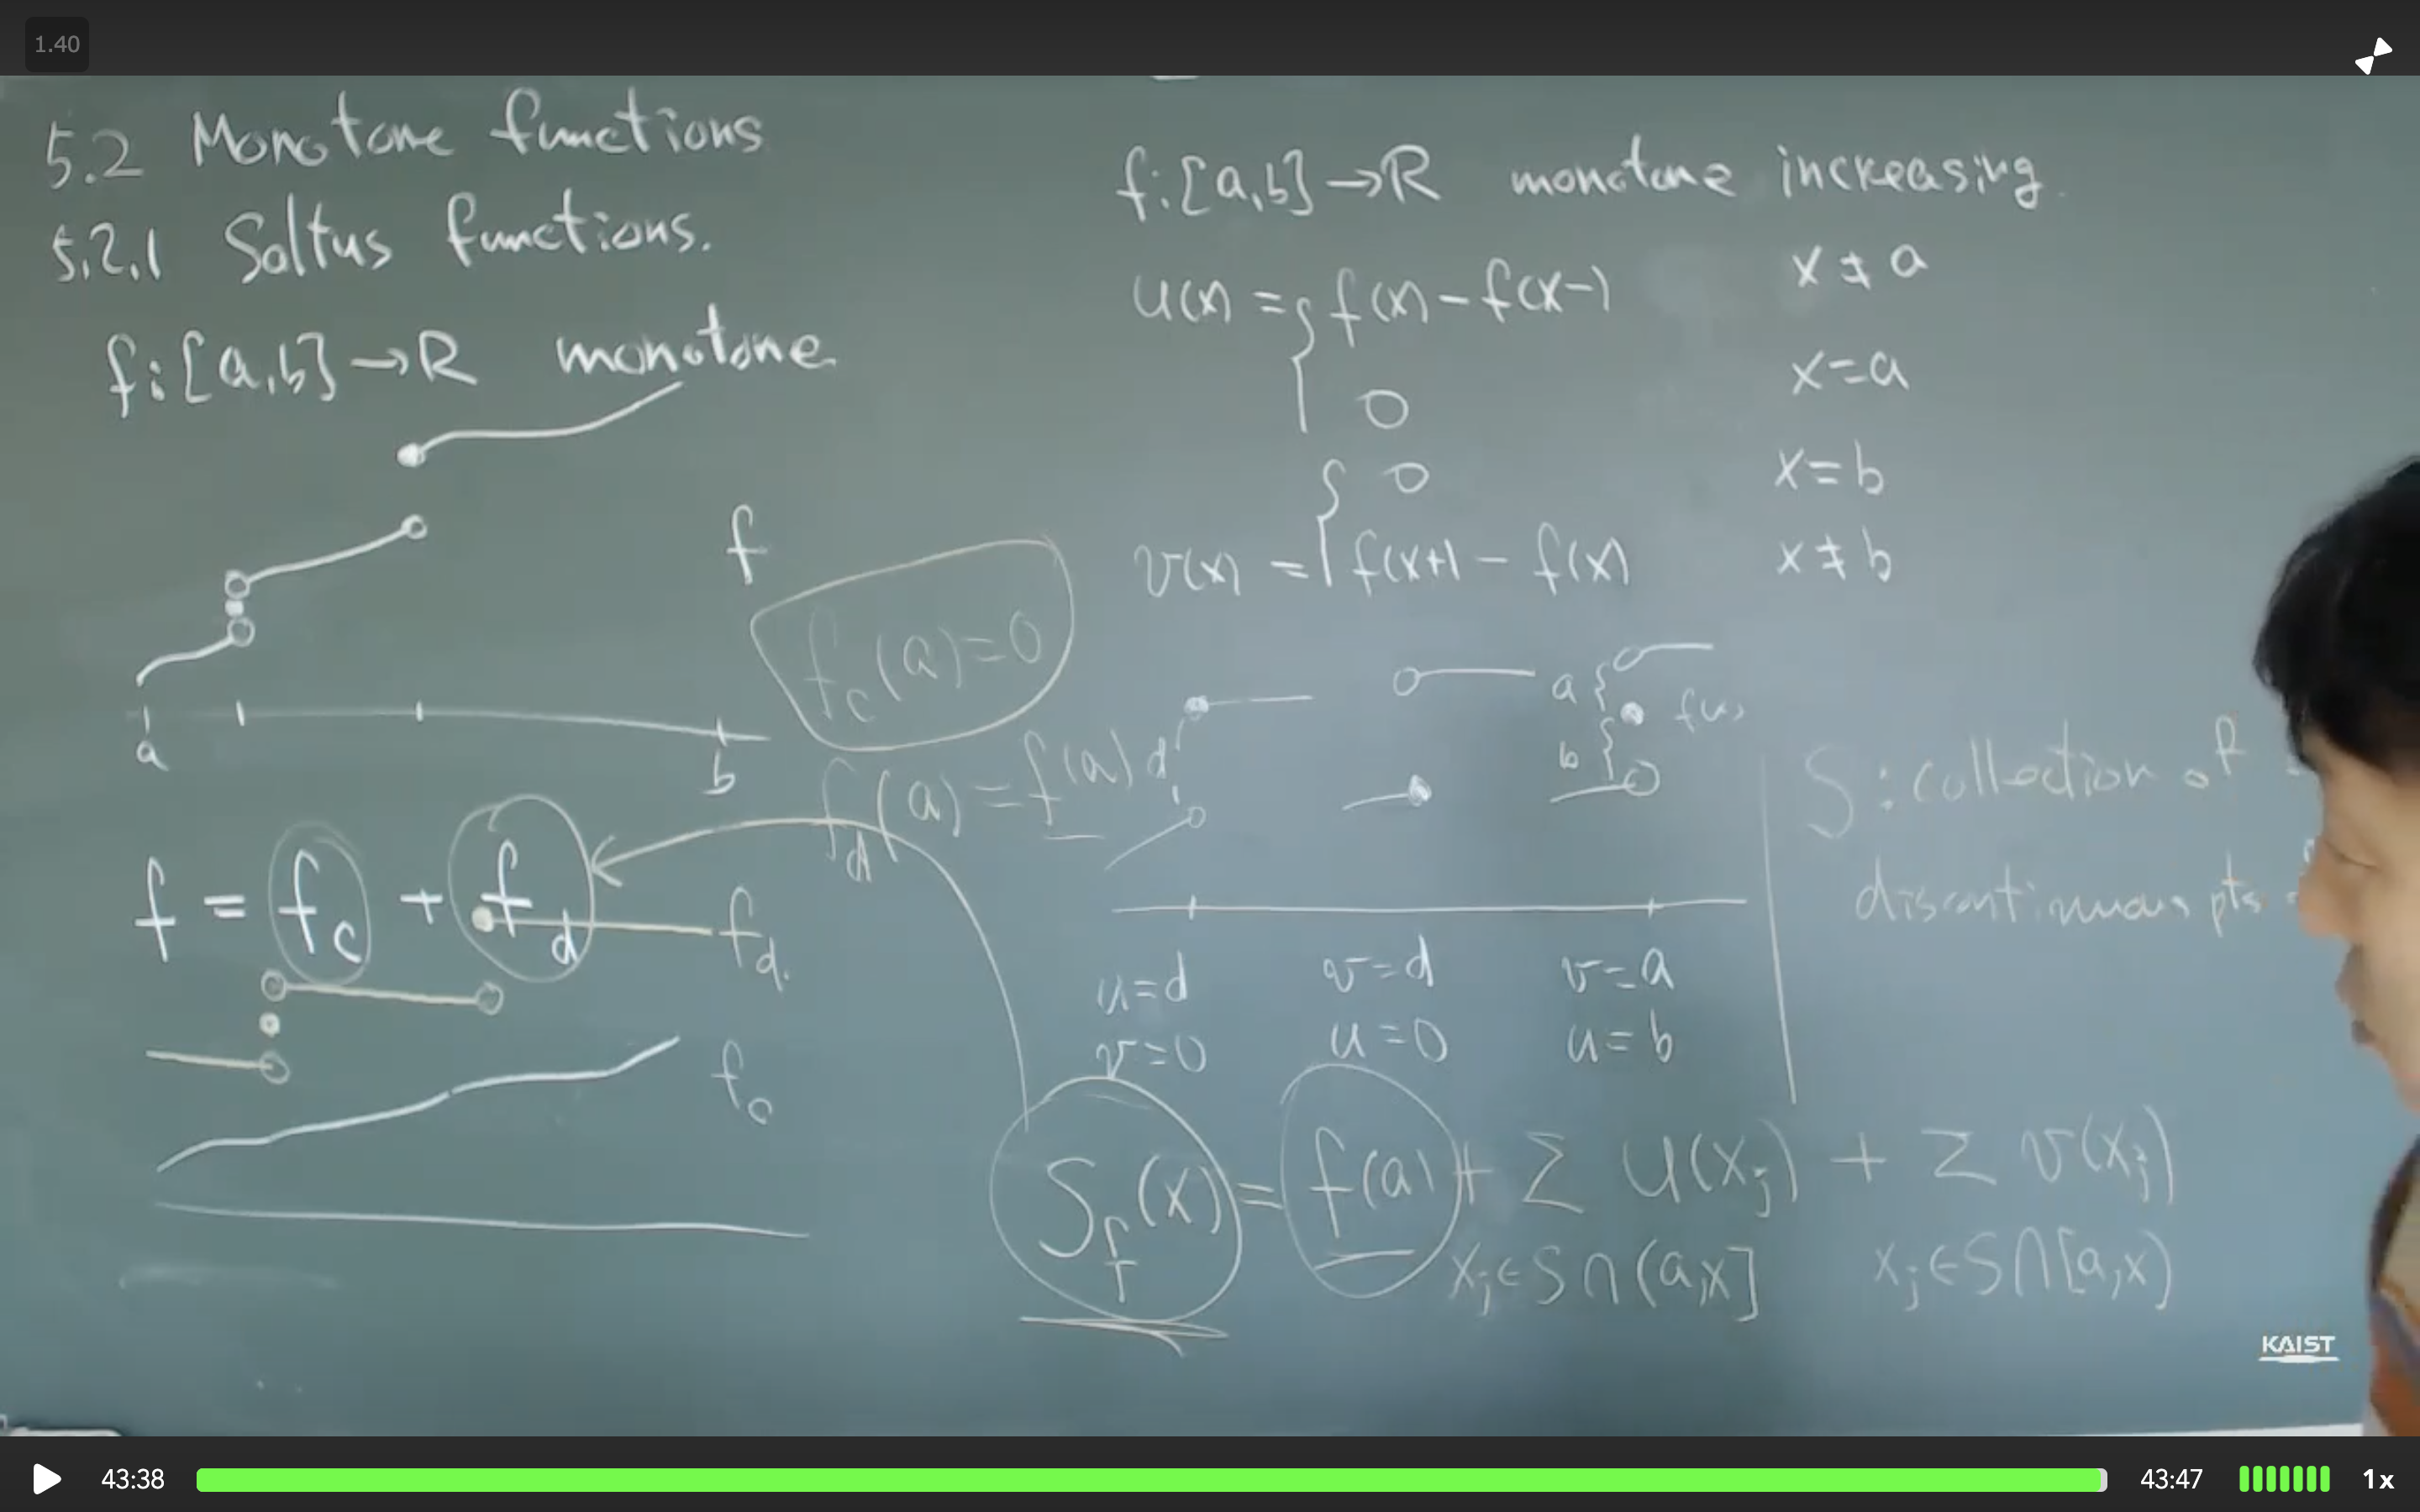 1.40
5.2 Monotone functions
5.2.1 Saltus functions.
f:[a,b]→R monotone
f
a
b
f_c(a)=0
f_d(a)=f(a)
f = f_c + f_d
f_d.
f_c
f:[a,b]→R monotone increasing.
u(x) = { f(x)-f(x-) x≠a
0 x=a
v(x) = { 0 x=b
f(x+)-f(x) x≠b
d
a {
f(x)
b {
u=d v=d v=a
v=0 u=0 u=b
S: collection of
discontinuous pts
S_f(x) = f(a) + Σ u(x_j) + Σ v(x_j)
x_j∈S∩(a,x] x_j∈S∩[a,x)
KAIST
43:38
43:47
1x